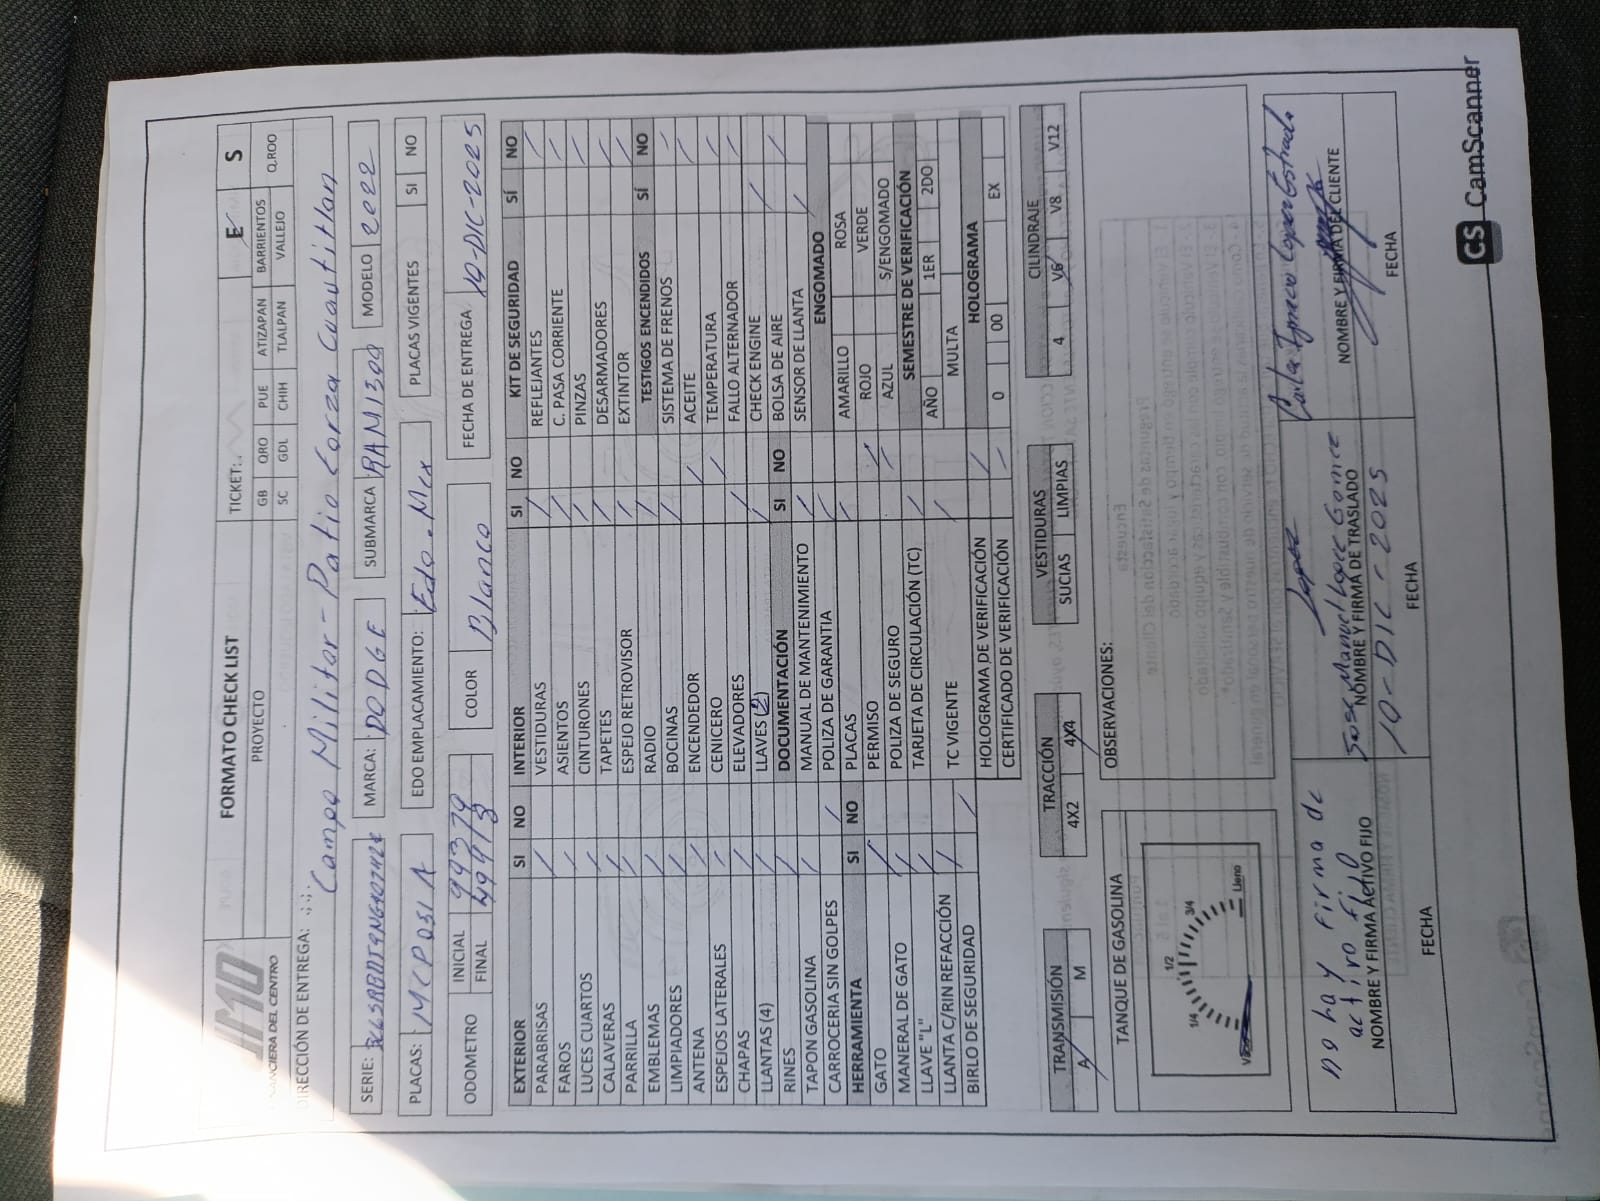 FORMATO CHECK LIST
TICKET: E S
FINANCIERA DEL CENTRO
PROYECTO
GB QRO PUE ATIZAPAN BARRIENTOS Q.ROO
SC GDL CHIH TLALPAN VALLEJO
DIRECCIÓN DE ENTREGA: Campo Militar - Patio Corza Cuautitlan
SERIE: MARCA: DODGE SUBMARCA RAM1500 MODELO 2022
PLACAS: EDO EMPLACAMIENTO: Edo. Mex PLACAS VIGENTES SI NO
ODOMETRO INICIAL FINAL COLOR Blanco FECHA DE ENTREGA 10-DIC-2025
EXTERIOR SI NO INTERIOR SI NO KIT DE SEGURIDAD SÍ NO
PARABRISAS VESTIDURAS REFLEJANTES
FAROS ASIENTOS C. PASA CORRIENTE
LUCES CUARTOS CINTURONES PINZAS
CALAVERAS TAPETES DESARMADORES
PARRILLA ESPEJO RETROVISOR EXTINTOR
EMBLEMAS RADIO TESTIGOS ENCENDIDOS SÍ NO
LIMPIADORES BOCINAS SISTEMA DE FRENOS
ANTENA ENCENDEDOR ACEITE
ESPEJOS LATERALES CENICERO TEMPERATURA
CHAPAS ELEVADORES FALLO ALTERNADOR
LLANTAS (4) LLAVES (2) CHECK ENGINE
RINES DOCUMENTACIÓN SI NO BOLSA DE AIRE
TAPON GASOLINA MANUAL DE MANTENIMIENTO SENSOR DE LLANTA
CARROCERIA SIN GOLPES POLIZA DE GARANTIA ENGOMADO
HERRAMIENTA SI NO PLACAS AMARILLO ROSA
GATO PERMISO ROJO VERDE
MANERAL DE GATO POLIZA DE SEGURO AZUL S/ENGOMADO
LLAVE "L" TARJETA DE CIRCULACIÓN (TC) SEMESTRE DE VERIFICACIÓN
LLANTA C/RIN REFACCIÓN TC VIGENTE AÑO 1ER 2DO
BIRLO DE SEGURIDAD MULTA
HOLOGRAMA DE VERIFICACIÓN HOLOGRAMA
CERTIFICADO DE VERIFICACIÓN 0 00 EX
TRANSMISIÓN TRACCIÓN VESTIDURAS CILINDRAJE
A M 4X2 4X4 SUCIAS LIMPIAS 4 V6 V8 V12
TANQUE DE GASOLINA OBSERVACIONES:
1/4 1/2 3/4 Lleno
no hay firma de
activo fijo
NOMBRE Y FIRMA ACTIVO FIJO
FECHA
Lopez
Jose Manuel Lopez Gomez
NOMBRE Y FIRMA DE TRASLADO
10-DIC-2025
FECHA
NOMBRE Y FIRMA DEL CLIENTE
FECHA
CS CamScanner